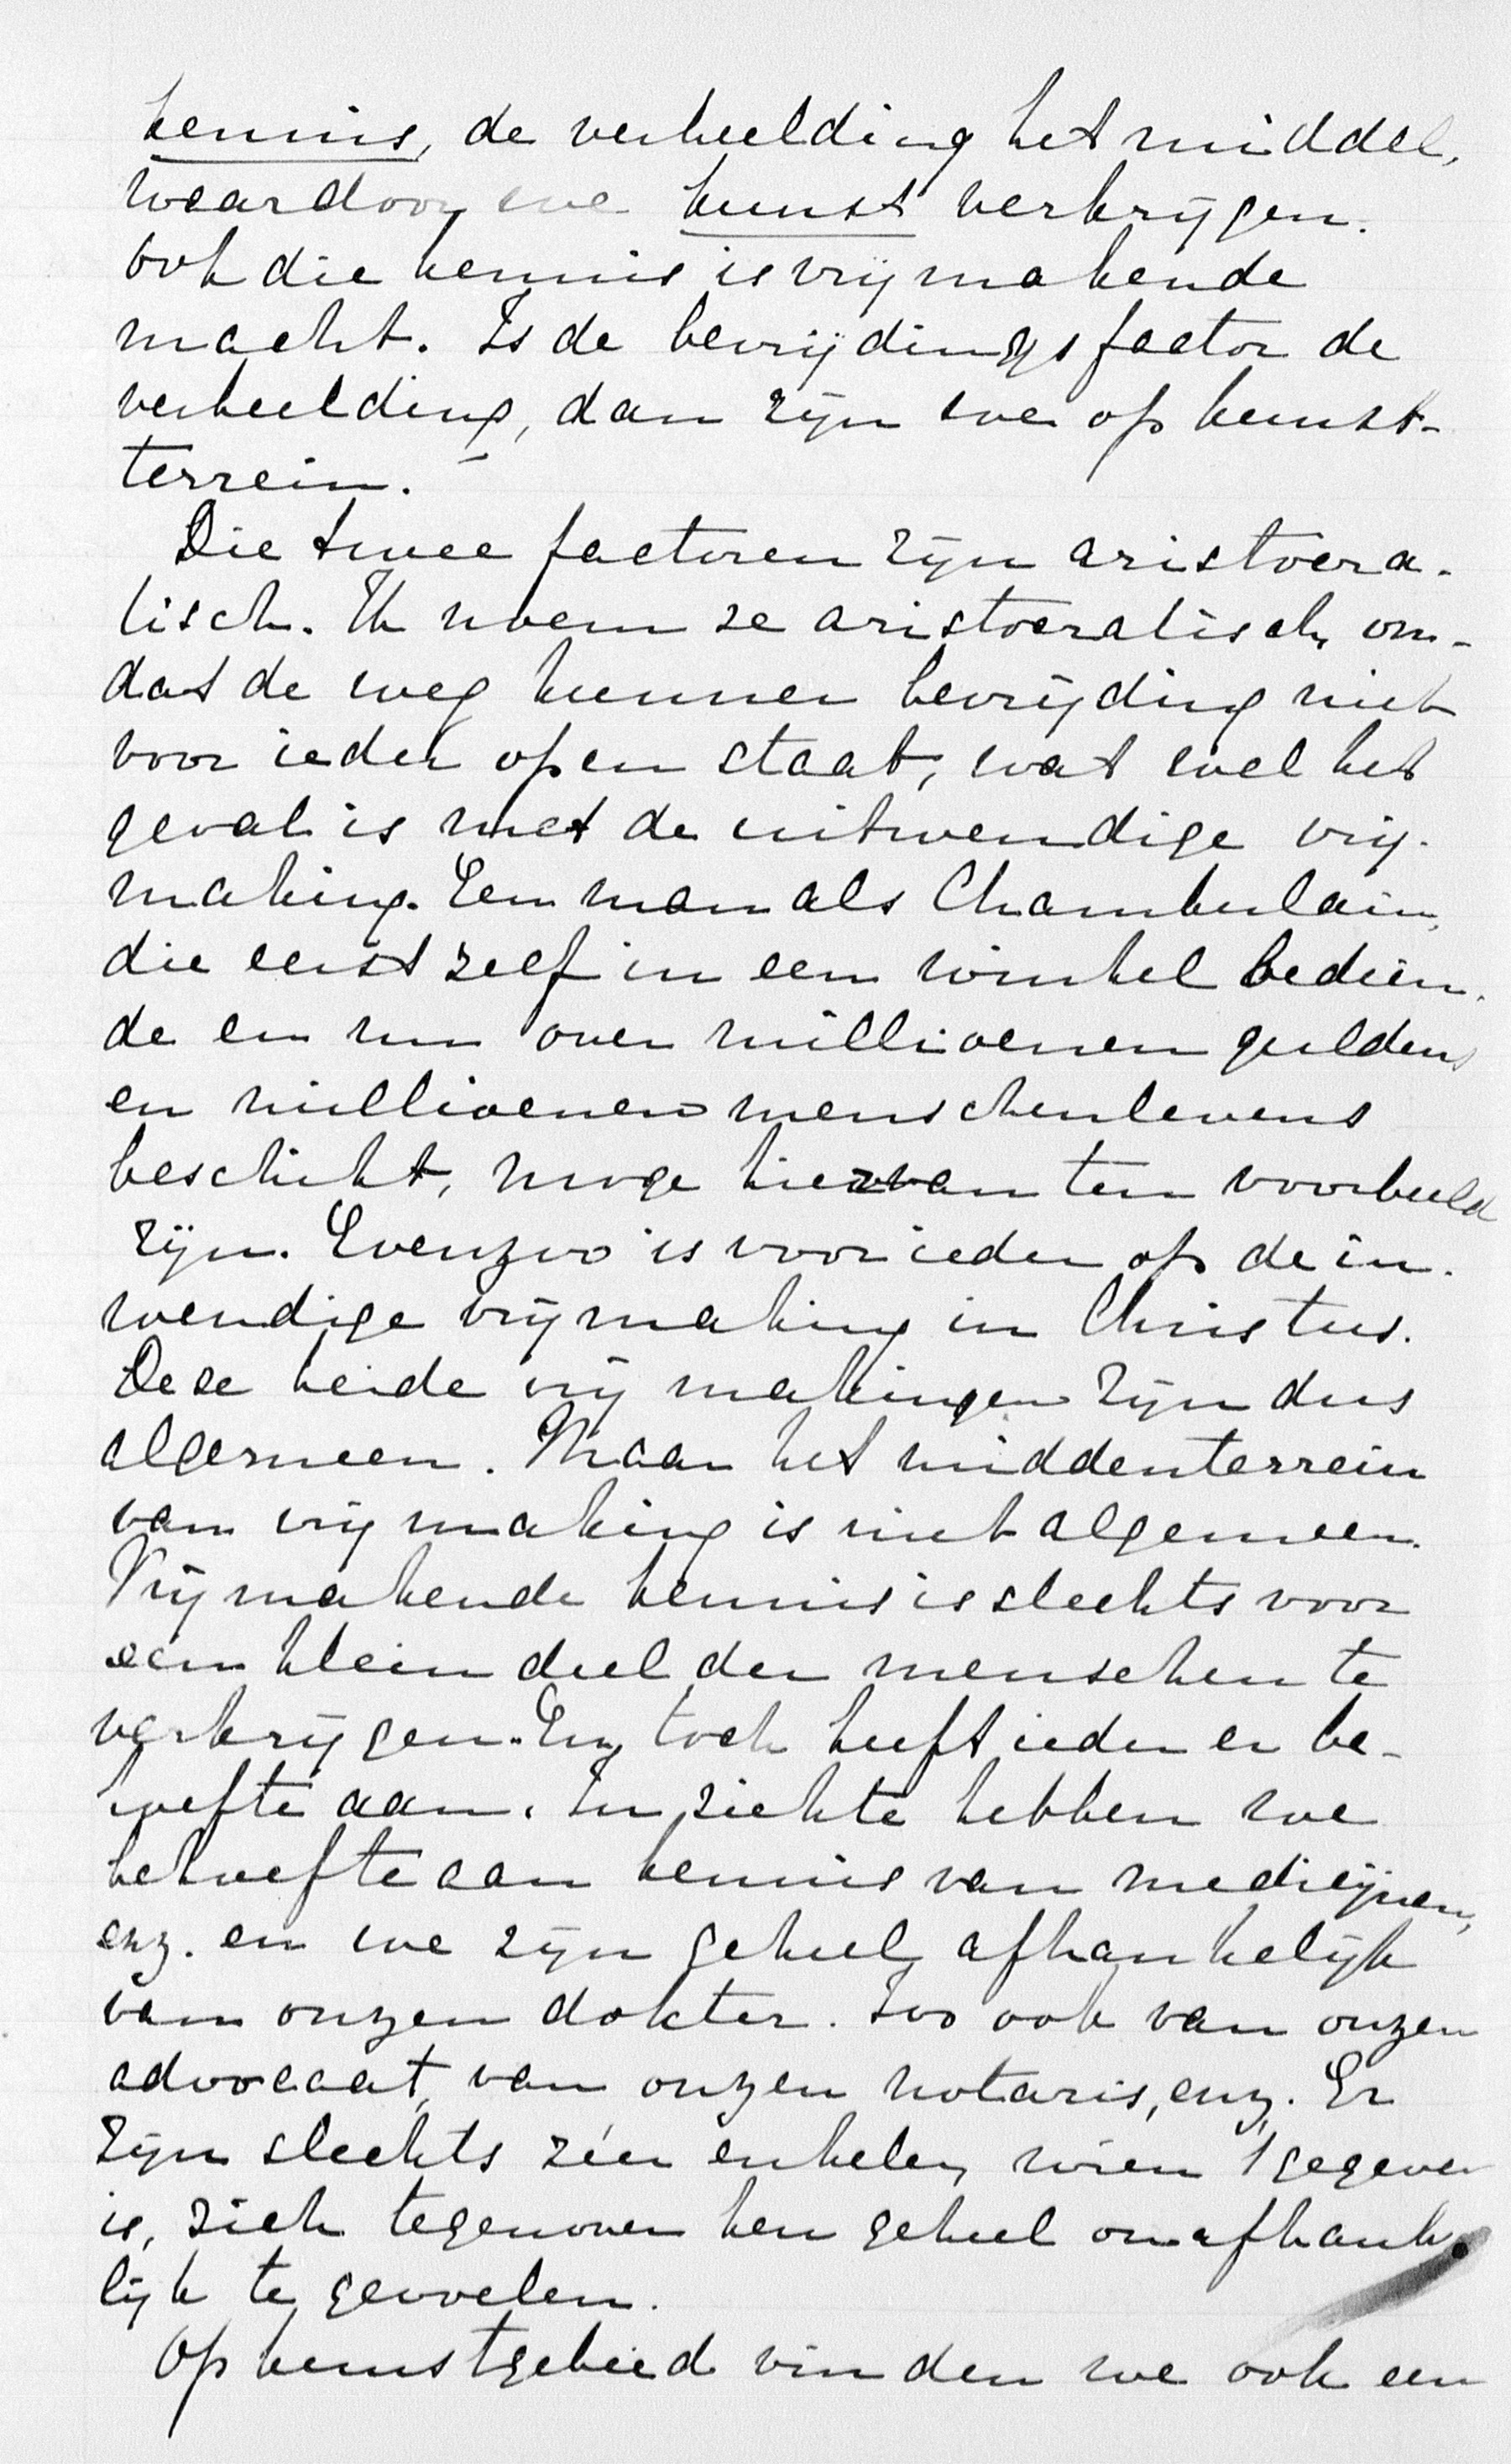 kennis, de verbeelding het middel,
waardoor we kunst verkrijgen.
Ook die kennis is vrijmakende
macht. Is de bevrijdingsfactor de
verbeelding, dan zijn we op kunst-
terrein.
Die twee factoren zijn aristocra-
tisch. Ik noem ze aristocratisch, om-
dat de weg hunner bevrijding niet
voor ieder open staat, wat wel het
geval is met de uitwendige vrij-
making. Een man als Chamberlain,
die eerst zelf in een winkel bedien-
de en nu over millioenen guldens
en millioenen menschenlevens
beschikt, moge hiervan ten voorbeeld
zijn. Evenzoo is voor ieder op de in-
wendige vrijmaking in Christus.
Deze beide vrijmakingen zijn dus
algemeen. Maar het middenterrein
van vrijmaking is niet algemeen.
Vrijmakende kennis is slechts voor
een klein deel der menschen te
verkrijgen. En toch heeft ieder er be-
hoefte aan. In ziekte hebben we
behoefte aan kennis van medicijnen,
enz. en we zijn geheel afhankelijk
van onzen dokter. Zoo ook van onzen
advocaat, van onzen notaris, enz. Er
zijn slechts zéér enkelen, wien 't gegeven
is, zich tegenover hen geheel onafhanke-
lijk te gevoelen.
Op kunstgebied vinden we ook een